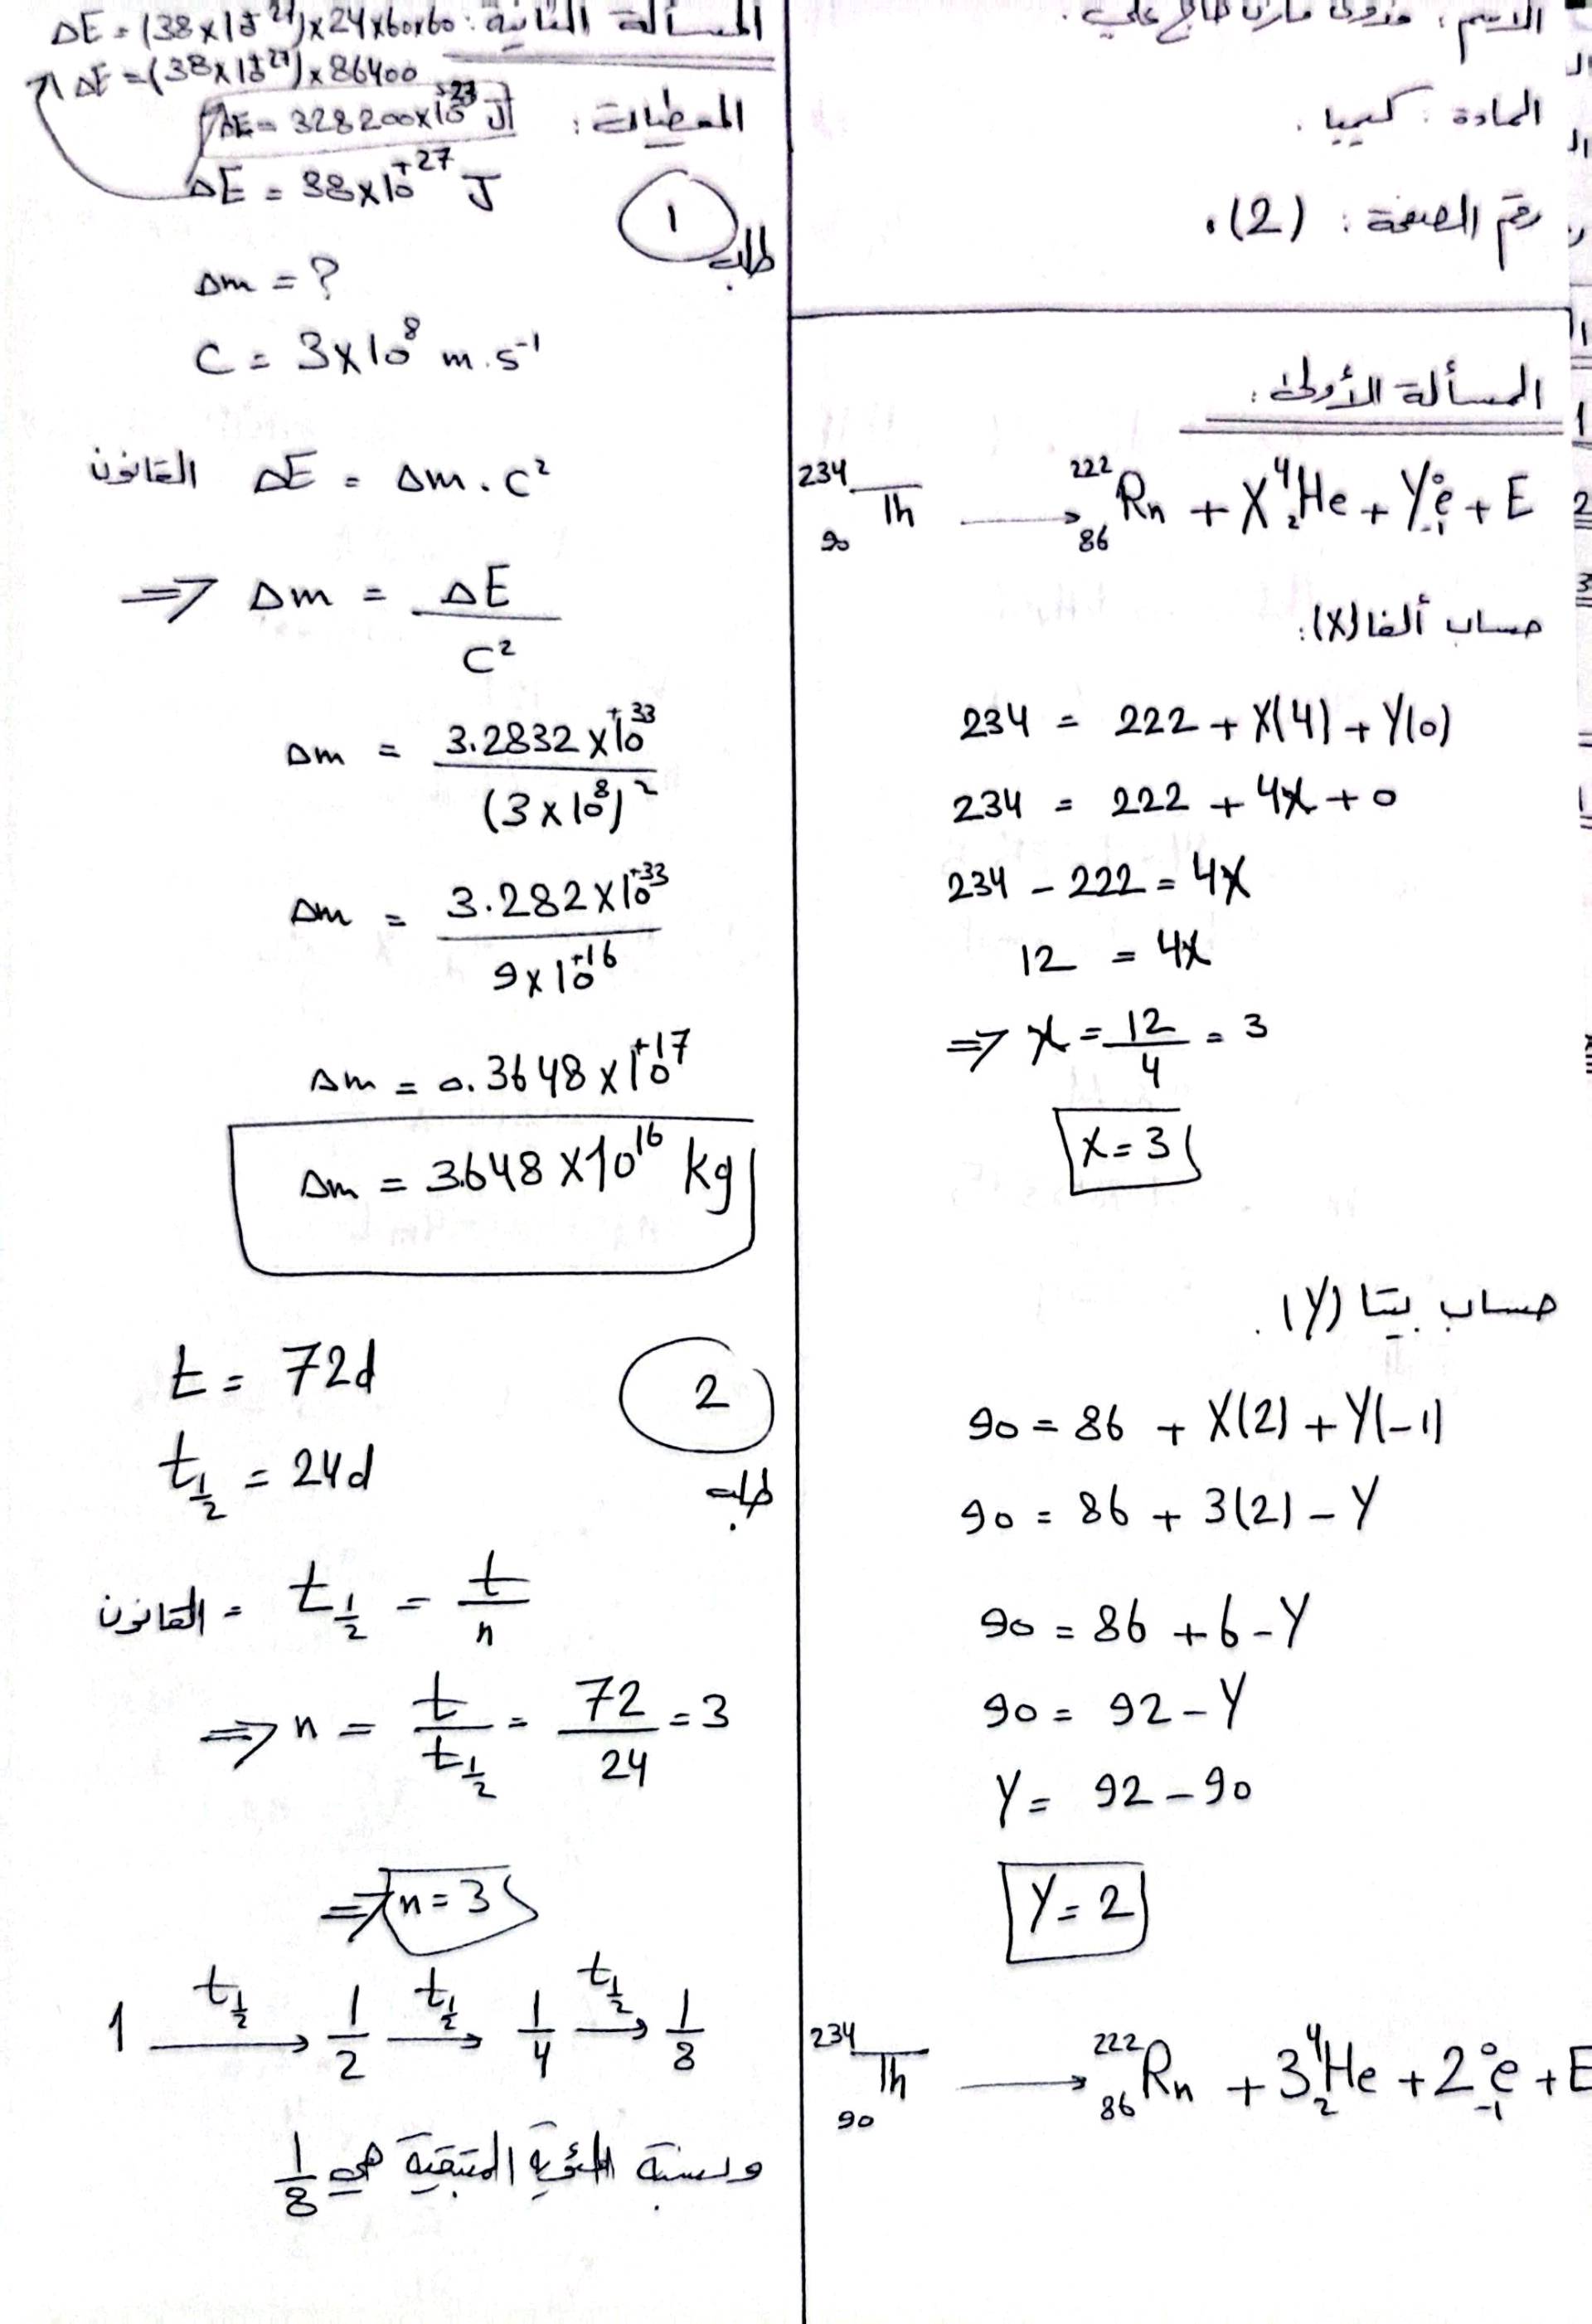 المادة : كيميا .
رقم الصفحة : (2) .
المسألة الأولى :
²³⁴₉₀Th → ²²²₈₆Rn + X ⁴₂He + Y ⁰₋₁e + E
حساب ألفا (X) :
234 = 222 + X(4) + Y(0)
234 = 222 + 4X + 0
234 - 222 = 4X
12 = 4X
⇒ X = 12/4 = 3
X = 3
حساب بيتا (Y) .
90 = 86 + X(2) + Y(-1)
90 = 86 + 3(2) - Y
90 = 86 + 6 - Y
90 = 92 - Y
Y = 92 - 90
Y = 2
²³⁴₉₀Th → ²²²₈₆Rn + 3 ⁴₂He + 2 ⁰₋₁e + E
المسألة الثانية :
ΔE = (38 × 10⁺²⁷) × 24 × 60 × 60
ΔE = (38 × 10⁺²⁷) × 86400
ΔE = 328200 × 10⁺²³ J
المعطيات :
ΔE = 38 × 10⁺²⁷ J
طلب 1
Δm = ?
C = 3 × 10⁸ m.s⁻¹
القانون ΔE = Δm . C²
⇒ Δm = ΔE / C²
Δm = 3.2832 × 10⁺³³ / (3 × 10⁸)²
Δm = 3.282 × 10⁺³³ / 9 × 10⁺¹⁶
Δm = 0.3648 × 10⁺¹⁷
Δm = 3.648 × 10¹⁶ kg
طلب 2
t = 72d
t½ = 24d
القانون = t½ = t/n
⇒ n = t / t½ = 72/24 = 3
⇒ n = 3
1 t½→ 1/2 t½→ 1/4 t½→ 1/8
ونسبة المئوية المتبقية هي 1/8